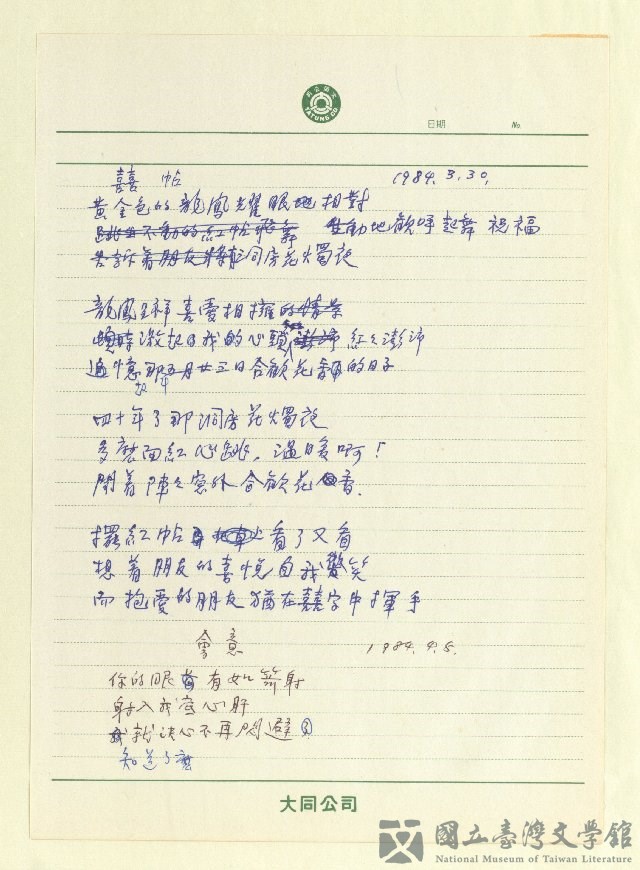 大同公司
TATUNG CO
日期 No.
囍帖 1984.3.30.
黃金色的龍鳳耀眼地相對
生動地歡呼起舞 祝福
告訴着朋友洞房花燭夜
龍鳳呈祥喜憂相擁的情景
頓時激起了我的心頭 紅紅澎湃
追憶那五月廿三日合歡花香的日子
四十年了那洞房花燭夜
多麼面紅心跳，溫暖啊！
聞着陣陣窓外合歡花香.
擺紅帖 上看了又看
想着朋友的喜悅自我 笑
而抱憂的朋友猶在囍字中揮手
會意 1984.4.5.
你的眼 有如箭射
射入我底心肝
我就決心不再閃避
知道了麼
大同公司
國立臺灣文學館
National Museum of Taiwan Literature